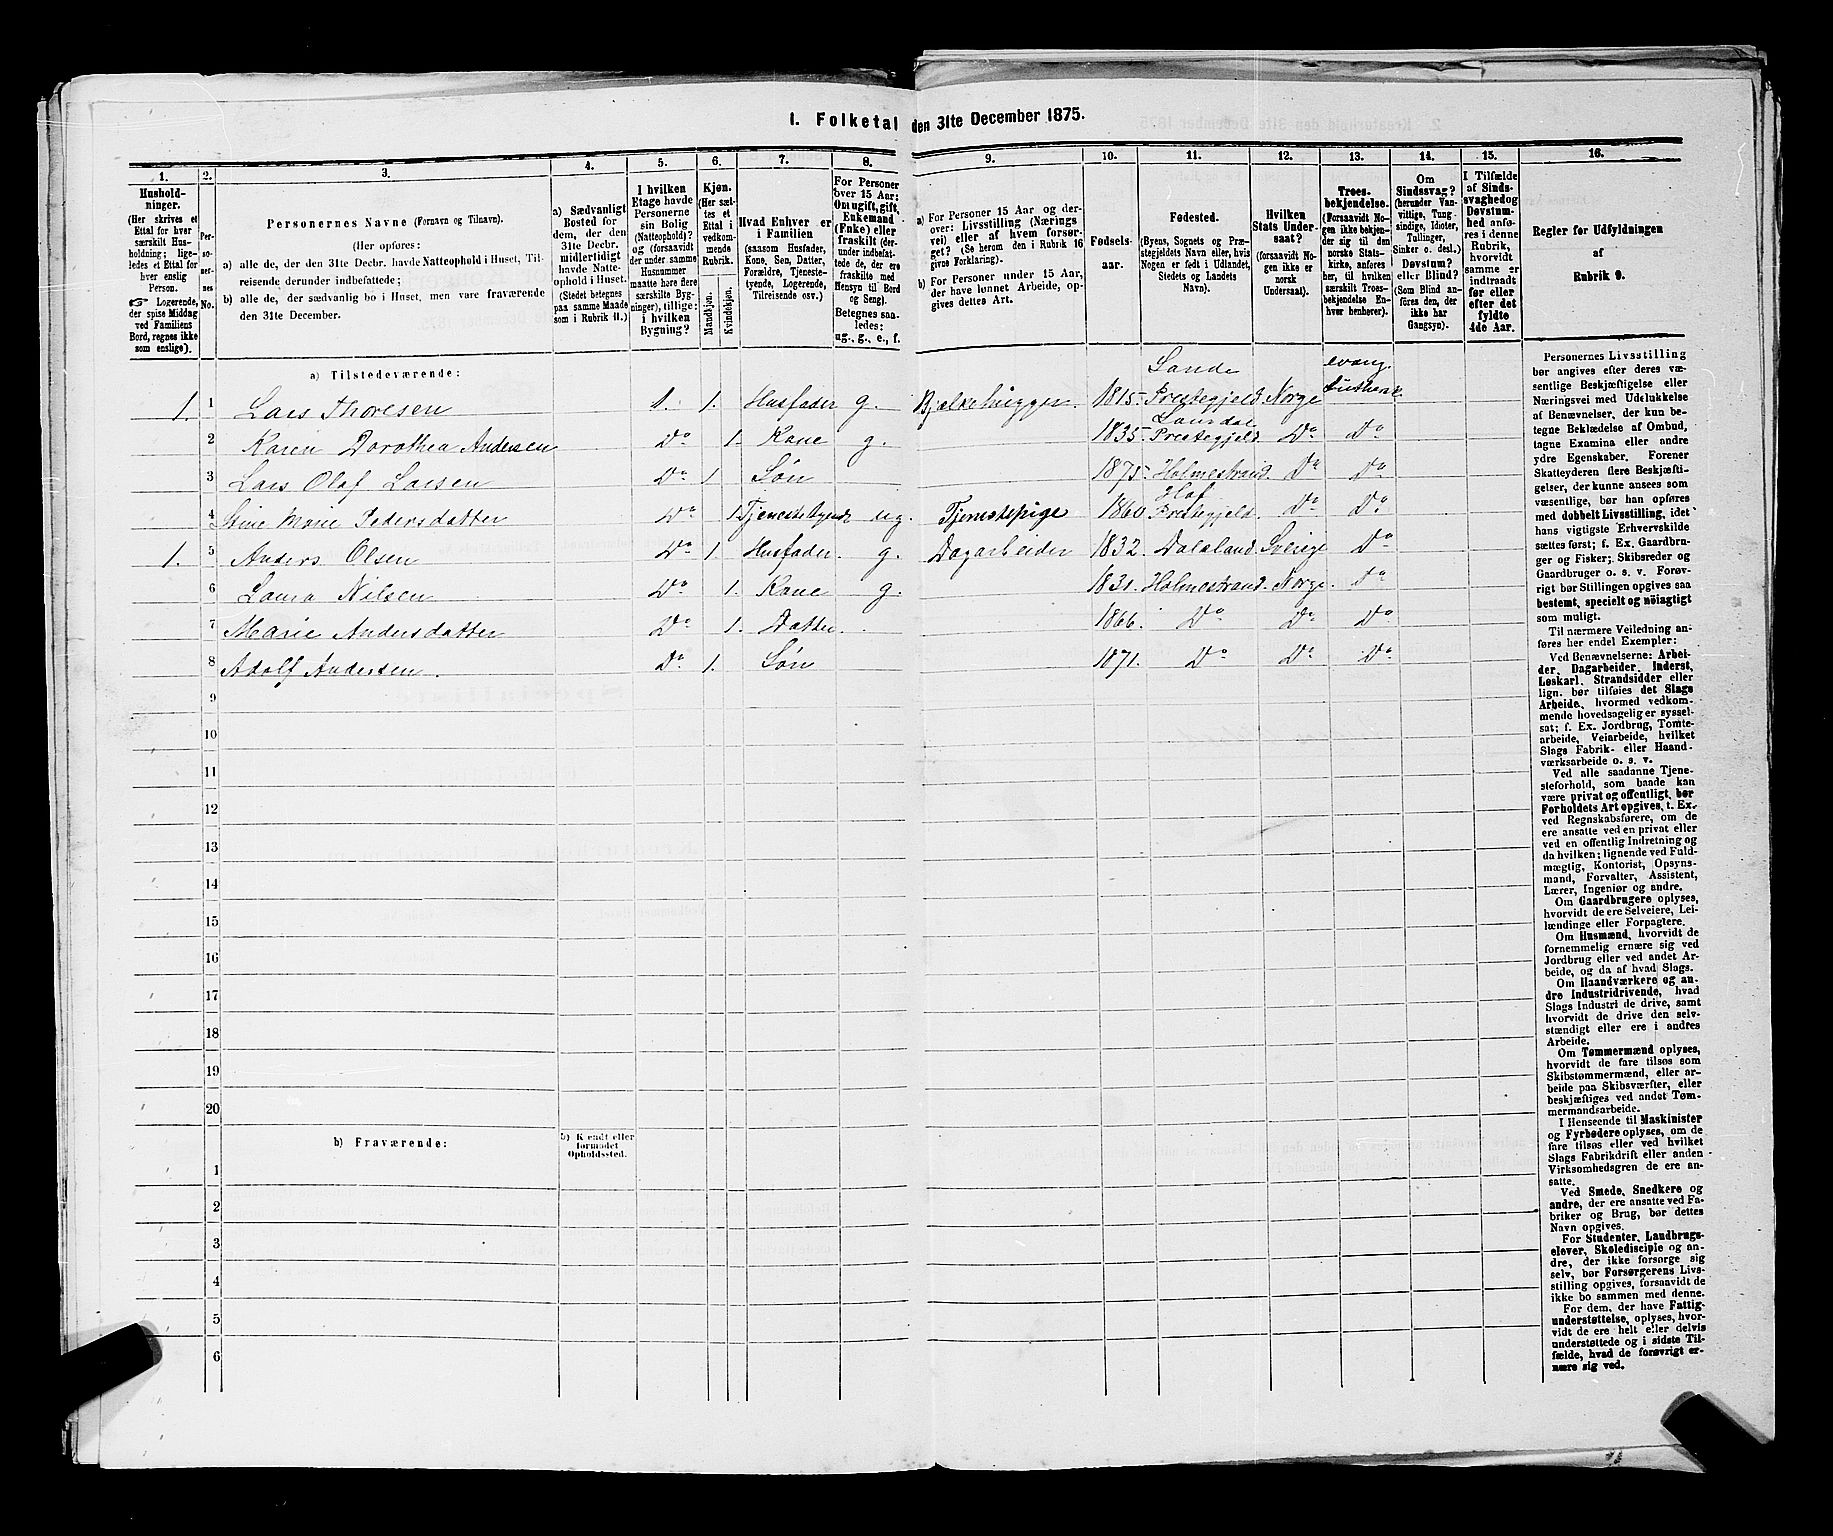 1. Folketal den 31te December 1875.
1. 2. 3. 4. 5. 6. 7. 8. 9. 10. 11. 12. 13. 14. 15. 16.
Hushold-
ninger.
(Her skrives et
Ettal for hver
særskilt Hus-
holdning; lige-
ledes et Ettal for
hver enslig
Person.
☞ Logerende,
der spise Middag
ved Familiens
Bord, regnes ikke
som enslige).
Per-
so-
ner-
nes
No.
Personernes Navne (Fornavn og Tilnavn).
(Her opføres:
a) alle de, der den 31te Decbr. havde Natteophold i Huset, Til-
reisende derunder indbefattede;
b) alle de, der sædvanlig bo i Huset, men vare fraværende
den 31te December.
a) Sædvanligt
Bosted for
dem, der den
31te Decbr.
midlertidigt
havde Natte-
ophold i Huset.
(Stedet betegnes
paa samme Maade
som i Rubrik 11.)
I hvilken
Etage havde
Personerne
sin Bolig
(Natteophold)?
og (forsaavidt
der under samme
Husnummer
maatte høre flere
særskilte Byg-
ninger), tillige:
i hvilken
Bygning?
Kjøn.
(Her sæt-
tes et
Ettal i
vedkom-
mende
Rubrik.
Mandkjøn.
Kvindekjøn.
Hvad Enhver er
i Familien
(saasom Husfader,
Kone, Søn, Datter,
Forældre, Tjeneste-
tyende, Logerende,
Tilreisende osv.)
For Personer
over 15 Aar:
Om ugift, gift,
Enkemand
(Enke) eller
fraskilt (der-
under indbefat-
tede de, der ere
fraskilte med
Hensyn til Bord
og Seng).
Betegnes saa-
ledes:
ug., g., e., f.
a) For Personer 15 Aar og der-
over: Livsstilling (Nærings
vei) eller af hvem forsør-
get? (Se herom den i Rubrik 16
givne Forklaring).
b) For Personer under 15 Aar,
der have lønnet Arbeide, op-
gives dettes Art.
Fødsels-
aar.
Fødested.
(Byens, Sognets og Præ-
stegjeldets Navn eller, hvis
Nogen er født i Udlandet,
Stedets og Landets
Navn).
Hvilken
Stats Under-
saat?
(forsaavidt No-
gen ikke er
norsk
Undersaat).
Troes-
bekjendelse.
(Forsaavidt No-
gen ikke bekjen-
der sig til den
norske Stats-
kirke, anføres
her, til hvilken
særskilt Troes-
bekjendelse En-
hver henhører).
Om
Sindssvag?
(herunder Van-
vittige, Tung-
sindige, Idioter,
Tullinger,
Sinker o. desl.)
Døvstum?
eller Blind?
(Som Blind an-
føres den, der
ikke har
Gangsyn).
I Tilfælde
af Sinds-
svaghed og
Døvstum-
hed anfø-
res i denne
Rubrik,
hvorvidt
samme er
indtraadt
før eller
efter det
fyldte
4de Aar.
Regler for Udfyldningen
af
Rubrik 9.
a) Tilstedeværende:
1. 1 Lars Thoresen 1. 1. Husfader g. Bjælkehugger. 1815. Sande Prestegjeld Norge evang. luthersk
2 Karen Dorothea Andersen Do 1. Kone g. 1835. Prestegjeld Do Do
3 Lars Olaf Larsen Do 1 Søn 1875. Holmestrand. Do Do
4 Stine Marie Pedersdatter Do 1 Tjenestetyende ug. Tjenestepige 1860 Hof Prestegjeld. Do Do
1. 5 Anders Olsen Do 1. Husfader g. Dagarbeider 1832. Dalsland. Sverige Do
6 Laura Nilsen Do 1. Kone g. 1831. Holmestrand. Norge. Do
7 Marie Andersdatter Do 1. Datter. 1866. Do Do Do
8 Adolf Andersen. Do 1. Søn 1871. Do Do Do
9
10
11
12
13
14
15
16
17
18
19
20
b) Fraværende:
b) Kjendt eller
formodet
Opholdssted.
1
2
3
4
5
6
Personernes Livsstilling
bør angives efter deres væ-
sentlige Beskjæftigelse eller
Næringsvei med Udelukkelse
af Benævnelser, der kun be-
tegne Beklædelse af Ombud,
tagne Examina eller andre
ydre Egenskaber. Forener
Skatteyderen flere Beskjæfti-
gelser, der kunne ansees som
væsentlige, bør han opføres
med dobbelt Livsstilling, idet
hans vigtigste Erhvervskilde
sættes først; f. Ex. Gaardbru-
ger og Fisker; Skibsreder og
Gaardbruger o. s. v. Forøv-
rigt bør Stillingen opgives saa
bestemt, specielt og nöiagtigt
som muligt.
Til nærmere Veiledning an-
føres her endel Exempler:
Ved Benævnelserne: Arbei-
der, Dagarbeider, Inderst,
Løskarl, Strandsidder eller
lign. bør tilføies det Slags
Arbeide, hvormed vedkom-
mende hovedsagelig er syssel-
sat; f. Ex. Jordbrug, Tomte-
arbeide, Veiarbeide, hvilket
Slags Fabrik- eller Haand-
værksarbeide o. s. v.
Ved alle saadanne Tjene-
steforhold, som baade kan
være privat og offentligt, bør
Forholdets Art opgives, t. Ex.
ved Regnskabsførere, om de
ere ansatte ved en privat eller
ved en offentlig Indretning og
da hvilken; lignende ved Fuld-
mægtig, Kontorist, Opsyns-
mand, Forvalter, Assistent,
Lærer, Ingeniør og andre.
Om Gaardbrugere oplyses,
hvorvidt de ere Selveiere, Lei-
lændinge eller Forpagtere.
Om Husmænd, hvorvidt de
fornemmelig ernære sig ved
Jordbrug eller ved andet Ar-
beide, og da af hvad Slags.
Om Haandværkere og an-
dre Industridrivende, hvad
Slags Industri de drive, samt
hvorvidt de drive den selv-
stændigt eller ere i andres
Arbeide.
Om Tømmermænd oplyses,
hvorvidt de fare tilsøs som
Skibstømmermænd, eller ar-
beide paa Skibsværfter, eller
beskjæftiges ved andet Tøm-
mermandsarbeide.
I Henseende til Maskinister
og Fyrbødere oplyses, om de
fare tilsøs eller ved hvilket
Slags Fabrikdrift eller anden
Virksomhedsgren de ere an-
satte.
Ved Smede, Snedkere og
andre, der ere ansatte ved Fa-
briker og Brug, bør dettes
Navn opgives.
For Studenter, Landbrugs-
elever, Skoledisciple og an-
dre, der ikke forsørge sig
selv, bør Forsørgerens Livs-
stilling opgives, forsaavidt de
ikke bo sammen med denne.
For dem, der have Fattig-
understøttelse, oplyses, hvor-
vidt de ere helt eller delvis
understøttede og i sidste Til-
fælde, hvad de forøvrigt er-
nære sig ved.